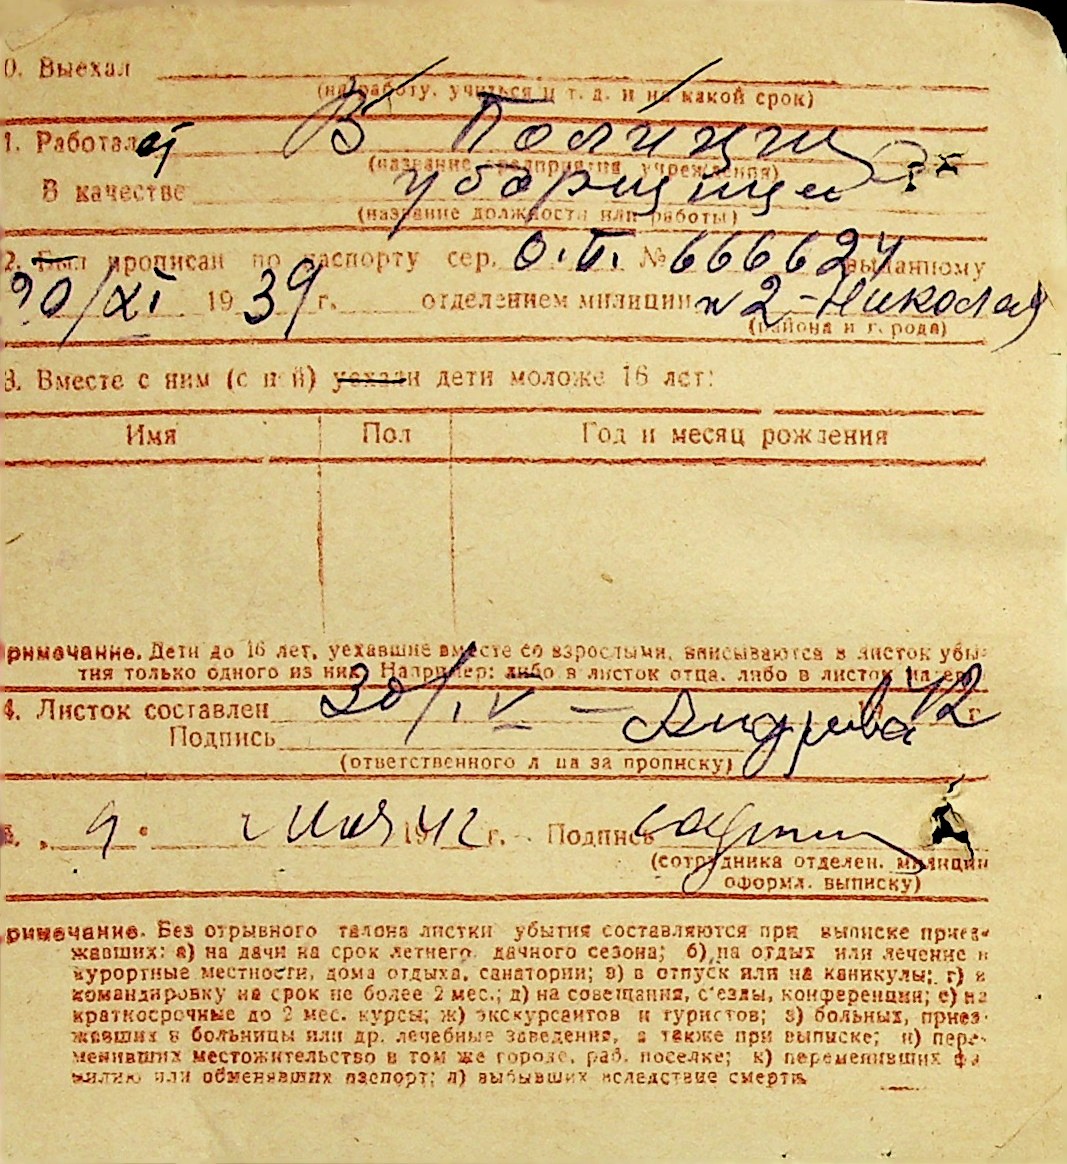 0. Выехал
(на работу, учиться и т. д. и на какой срок)
1. Работалает В Полиции
(название предприятия, учреждения)
В качестве уборщицы
(название должности или работы)
2. Был прописан по паспорту сер. О.П. № 666624 выданному
20/XI 1939 г. отделением милиции № 2 - Николаев
(района и города)
3. Вместе с ним (с ней) уехали дети моложе 16 лет:
Имя Пол Год и месяц рождения
римечание. Дети до 16 лет, уехавшие вместе со взрослыми, вписываются в листок убы-
тия только одного из них. Например: либо в листок отца, либо в листок матери
4. Листок составлен 30/IV - 1942 г.
Подпись Андреева
(ответственного лица за прописку)
5. „9“ мая 1942 г. Подпись
(сотрудника отделен. милиции
оформл. выписку)
римечание. Без отрывного талона листки убытия составляются при выписке приез-
жавших: а) на дачи на срок летнего дачного сезона; б) на отдых или лечение в
курортные местности, дома отдыха, санатории; в) в отпуск или на каникулы; г) в
командировку на срок не более 2 мес.; д) на совещания, с'езды, конференции; е) на
краткосрочные до 2 мес. курсы; ж) экскурсантов и туристов; з) больных, приез-
жавших в больницы или др. лечебные заведения, а также при выписке; и) пере-
менивших местожительство в том же городе, раб. поселке; к) переменивших фа
милию или обменявших паспорт; л) выбывших вследствие смерти.